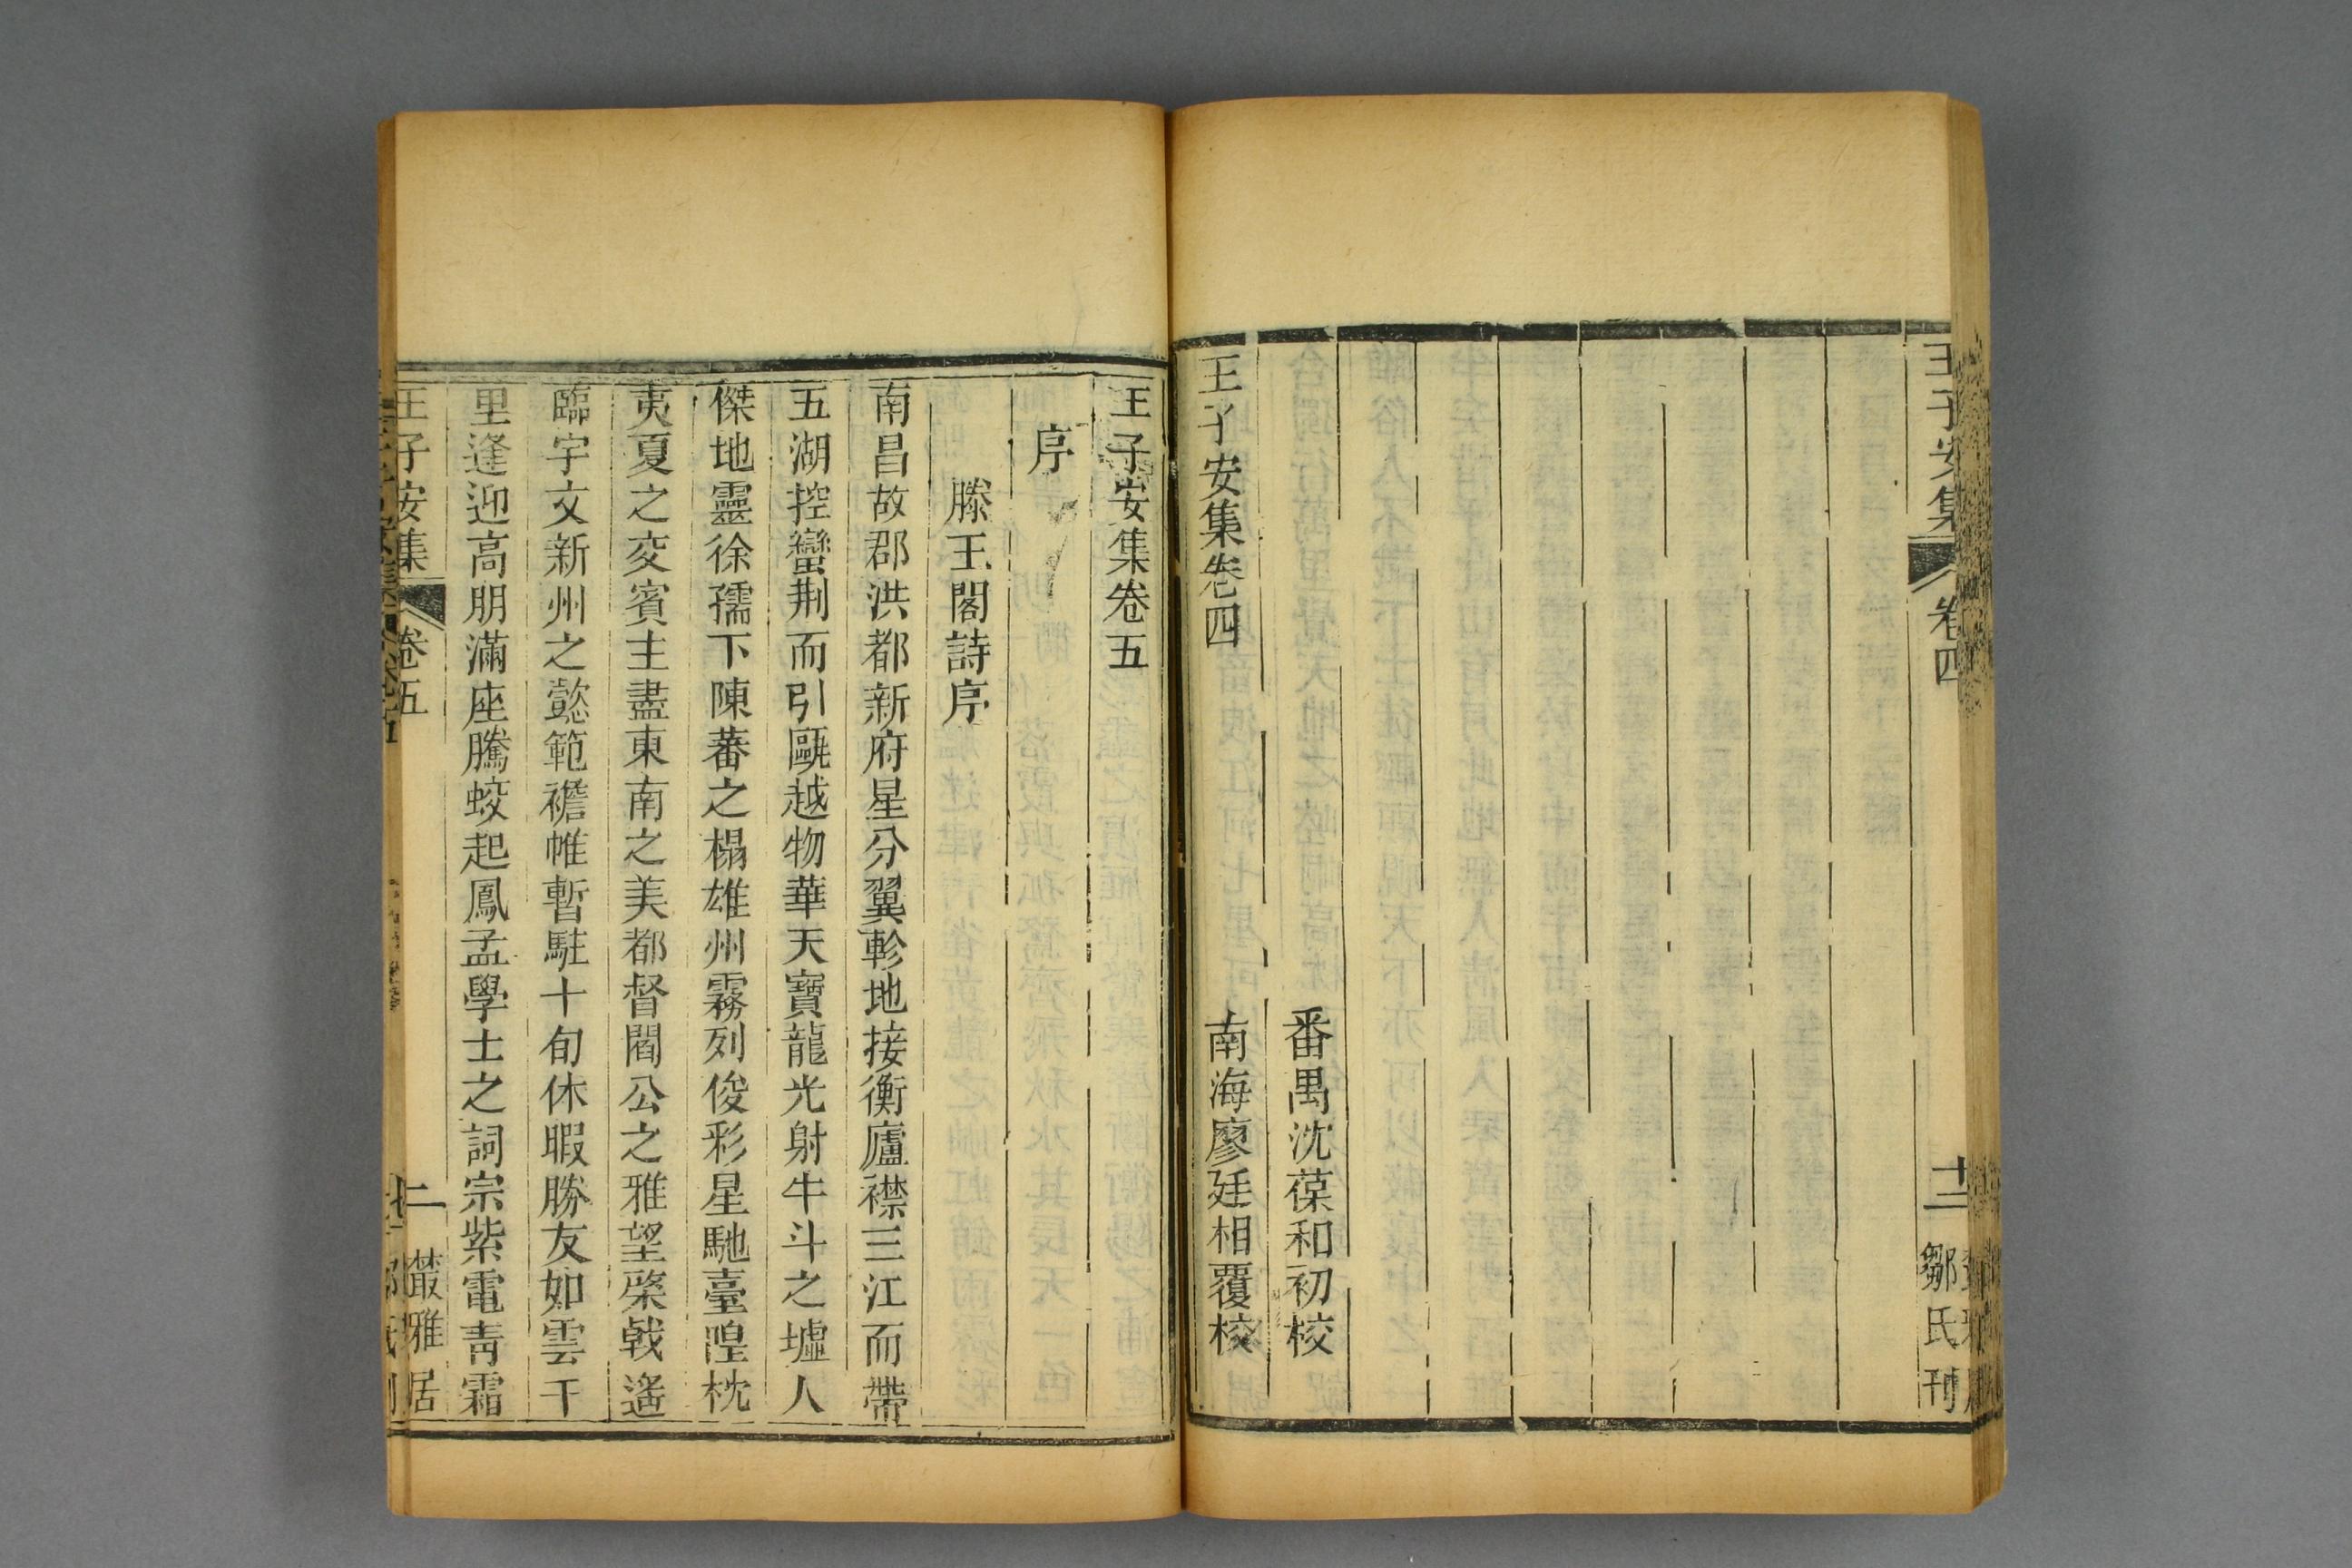 王子安集
卷四
十二
鄒氏刊
番禺沈葆和初校
王子安集卷四
南海廖廷相覆校
王子安集卷五
序
滕王閣詩序
南昌故郡洪都新府星分翼軫地接衡廬襟三江而帶
五湖控蠻荆而引甌越物華天寶龍光射牛斗之墟人
傑地靈徐孺下陳蕃之榻雄州霧列俊彩星馳臺隍枕
夷夏之交賓主盡東南之美都督閻公之雅望棨戟遙
臨宇文新州之懿範襜帷暫駐十旬休暇勝友如雲千
里逢迎高朋滿座騰蛟起鳳孟學士之詞宗紫電靑霜
王子安集
卷五
一
叢雅居